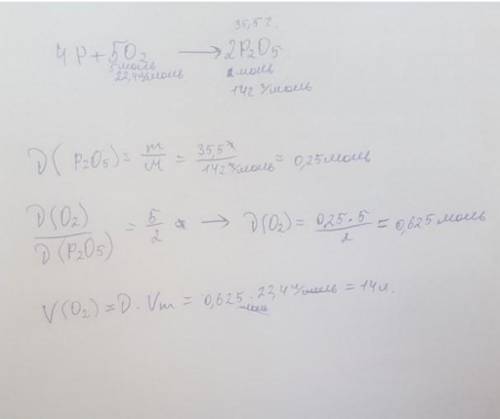 35,5 г.
4P + 5O₂ → 2P₂O₅
5моль 2моль
22,4 л/моль 142 г/моль
D(P₂O₅) = m/M = 35,5 г/142 г/моль = 0,25 моль
D(O₂)/D(P₂O₅) = 5/2 → D(O₂) = 0,25·5/2 = 0,625 моль
V(O₂) = D·Vm = 0,625·22,4 л/моль = 14 л.